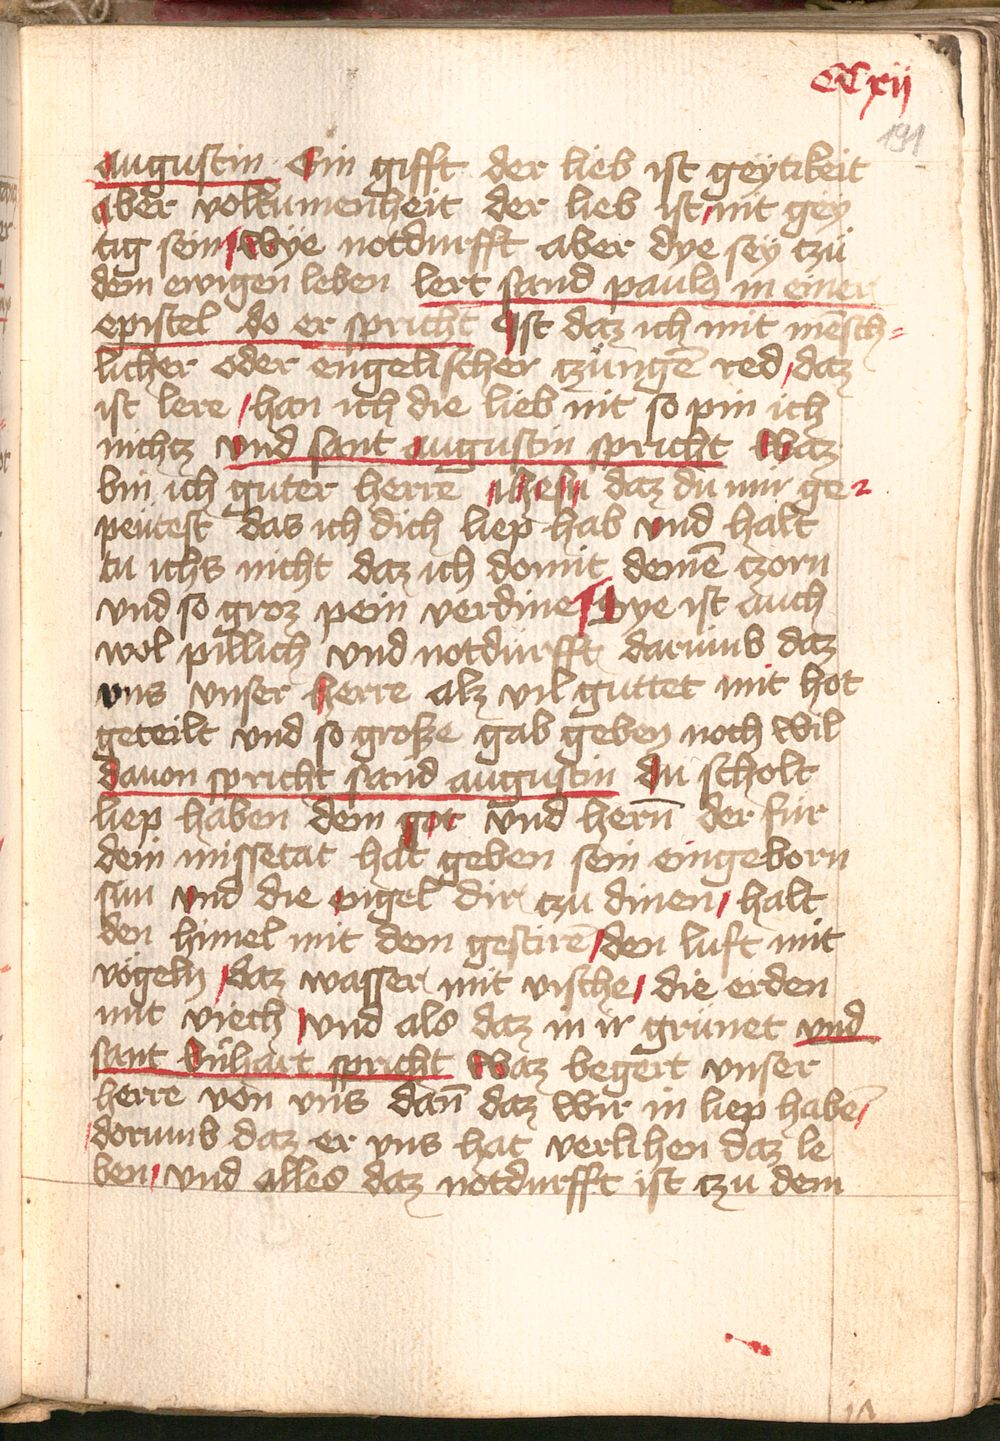 CCxij
191
augustin Ein gifft der lieb ist geytikeit
aber volkumenheit der lieb ist nit gey
tig sein Wye notdurfft aber dye sey tzu
dem ewigen leben lert sand pauls in einer
epistel do er spricht Ist daz ich mit mēsch=
licher oder engelischer tzungē red daz
ist lere han ich die lieb nit so pin ich
nichtz vnd sant augustin spricht Waz
bin ich guter herre Ihesu daz du mir ge
peutest das ich dich liep hab vnd halt
tu ichs nicht daz ich domit deinē tzorn
vnd so groz pein verdine Dye ist auch
wol pillich vnd notdurfft darumb daz
vns vnser herre alz vil guttet mit hot
geteilt vnd so große gab geben noch wil
dauon spricht sand augustin du scholt
liep haben dem got vnd hern̄ der fur
dein missetat hat geben sein eingeborn
sun vnd die engel dir tzu dinen halt
den himel mit dem gestirē den luft mit
vögeln daz wasser mit vische die erden
mit viech vnd als daz in ir grunet vnd
sant linhart spricht Waz begert vnser
herre von vns dan̄ daz wir in liep habē
dorumb daz er vns hat verlihen daz le
ben vnd alles daz notdurfft ist tzu dem